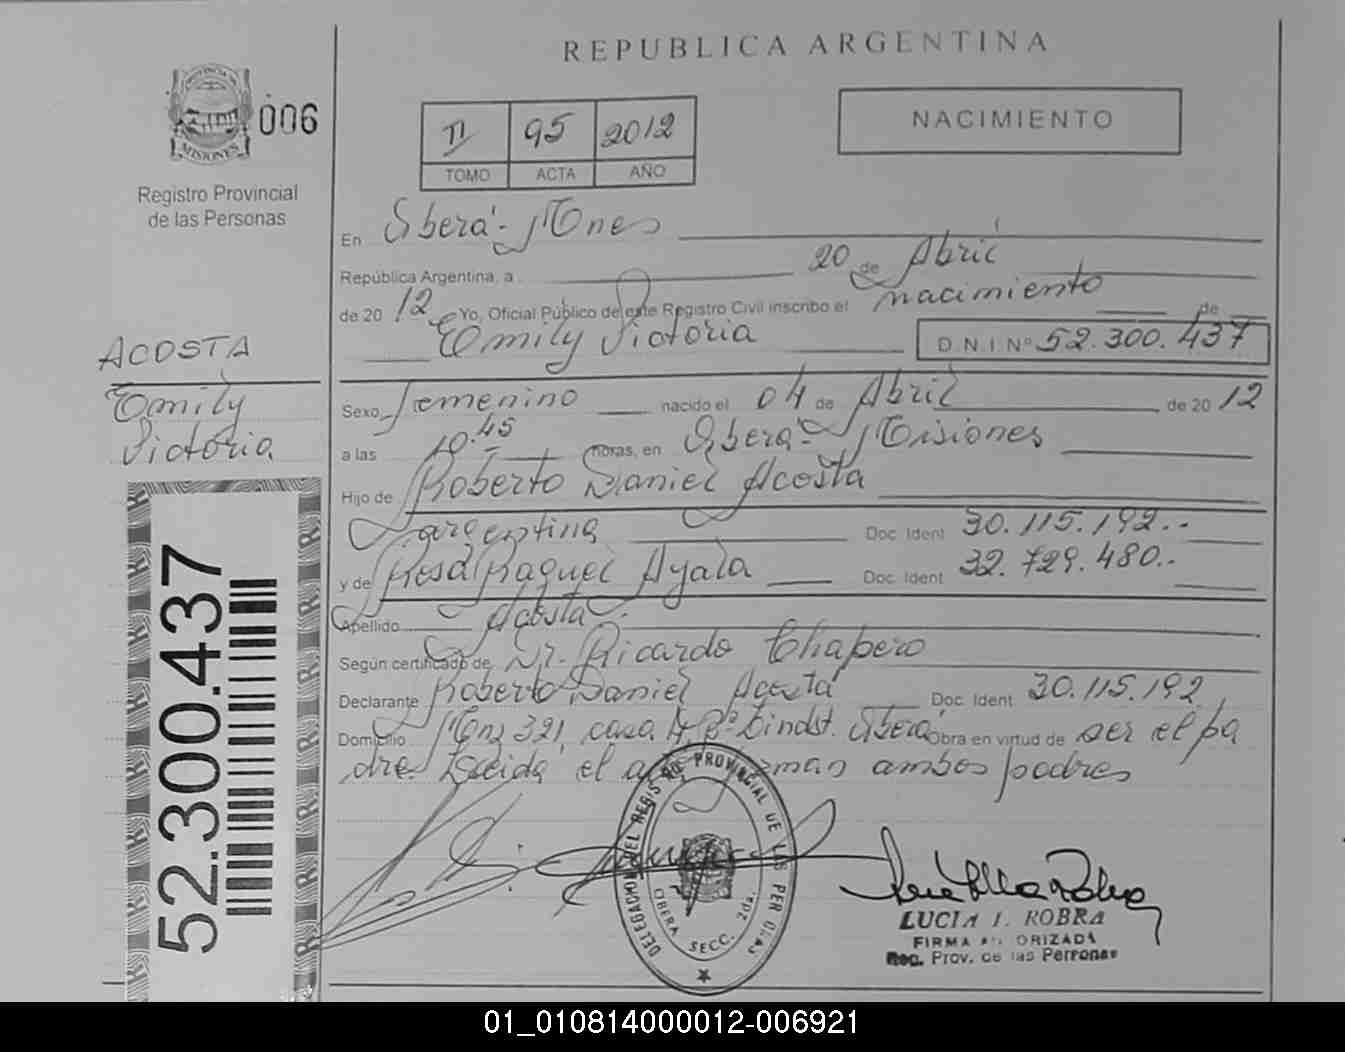 REPUBLICA ARGENTINA
PROVINCIA DE
MISIONES
006
Registro Provincial
de las Personas
II 95 2012
TOMO ACTA AÑO
NACIMIENTO
En Oberá - Mnes
República Argentina, a 20 de Abril
de 2012 Yo, Oficial Público de este Registro Civil inscribo el nacimiento de
Emily Victoria D.N.I.Nº 52.300.437
ACOSTA
Emily
Victoria
Sexo Femenino nacido el 04 de Abril de 2012
a las 10.45 horas, en Oberá - Misiones
Hijo de Roberto Daniel Acosta
argentina Doc. Ident 30.115.192..
y de Rosa Raquel Ayala Doc. Ident 32.729.480..
Apellido Acosta.
Según certificado de Dr. Ricardo Chapero
Declarante Roberto Daniel Acosta Doc. Ident 30.115.192
Domicilio Mns 321, casa 14, Bº Oberá Obra en virtud de ser el pa
dre. Leída el ambos padres
52.300.437
DELEGACION DEL REGISTRO PROVINCIAL DE LAS PERSONAS
OBERA SECC. 2da.
LUCIA I. ROBRA
FIRMA AUTORIZADA
Reg. Prov. de las Personas
01_010814000012-006921